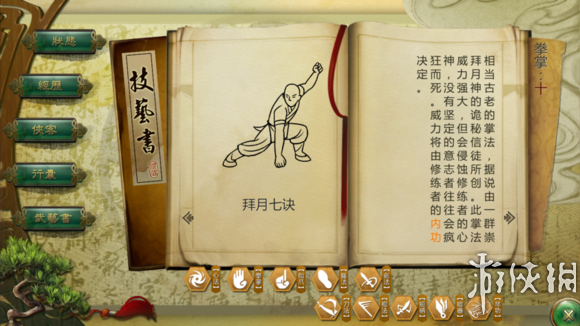 狀態
經歷
俠客
行囊
技藝書
技藝書
拜月七诀
拳掌：十
相当古老的掌法，据说由一群崇
拜月神的诡秘信徒所创。此掌法
威力强大，但会侵蚀修练者的心
神，没有坚定的意志者往往会疯
狂而死。威力将由修练者的内功
决定。
游侠网